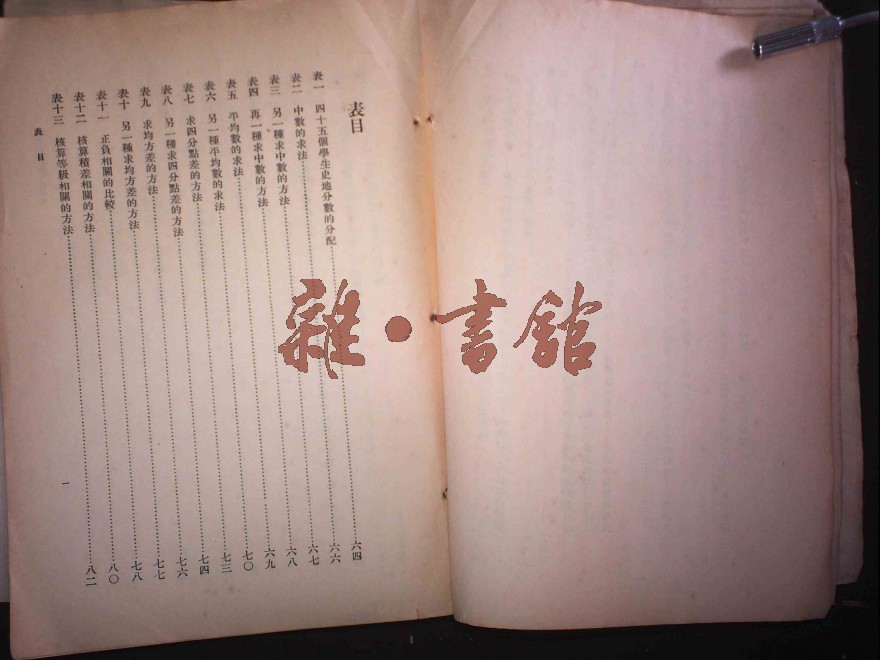 表目
表一 四十五個學生史地分數的分配……六四
表二 中數的求法……六六
表三 另一種求中數的方法……六七
表四 再一種求中數的方法……六八
表五 平均數的求法……六九
表六 另一種平均數的求法……七〇
表七 求四分點差的方法……七三
表八 另一種求四分點差的方法……七四
表九 求均方差的方法……七六
表十 另一種求均方差的方法……七七
表十一 正負相關的比較……七八
表十二 核算積差相關的方法……八〇
表十三 核算等級相關的方法……八二
表目
一
雜·書館